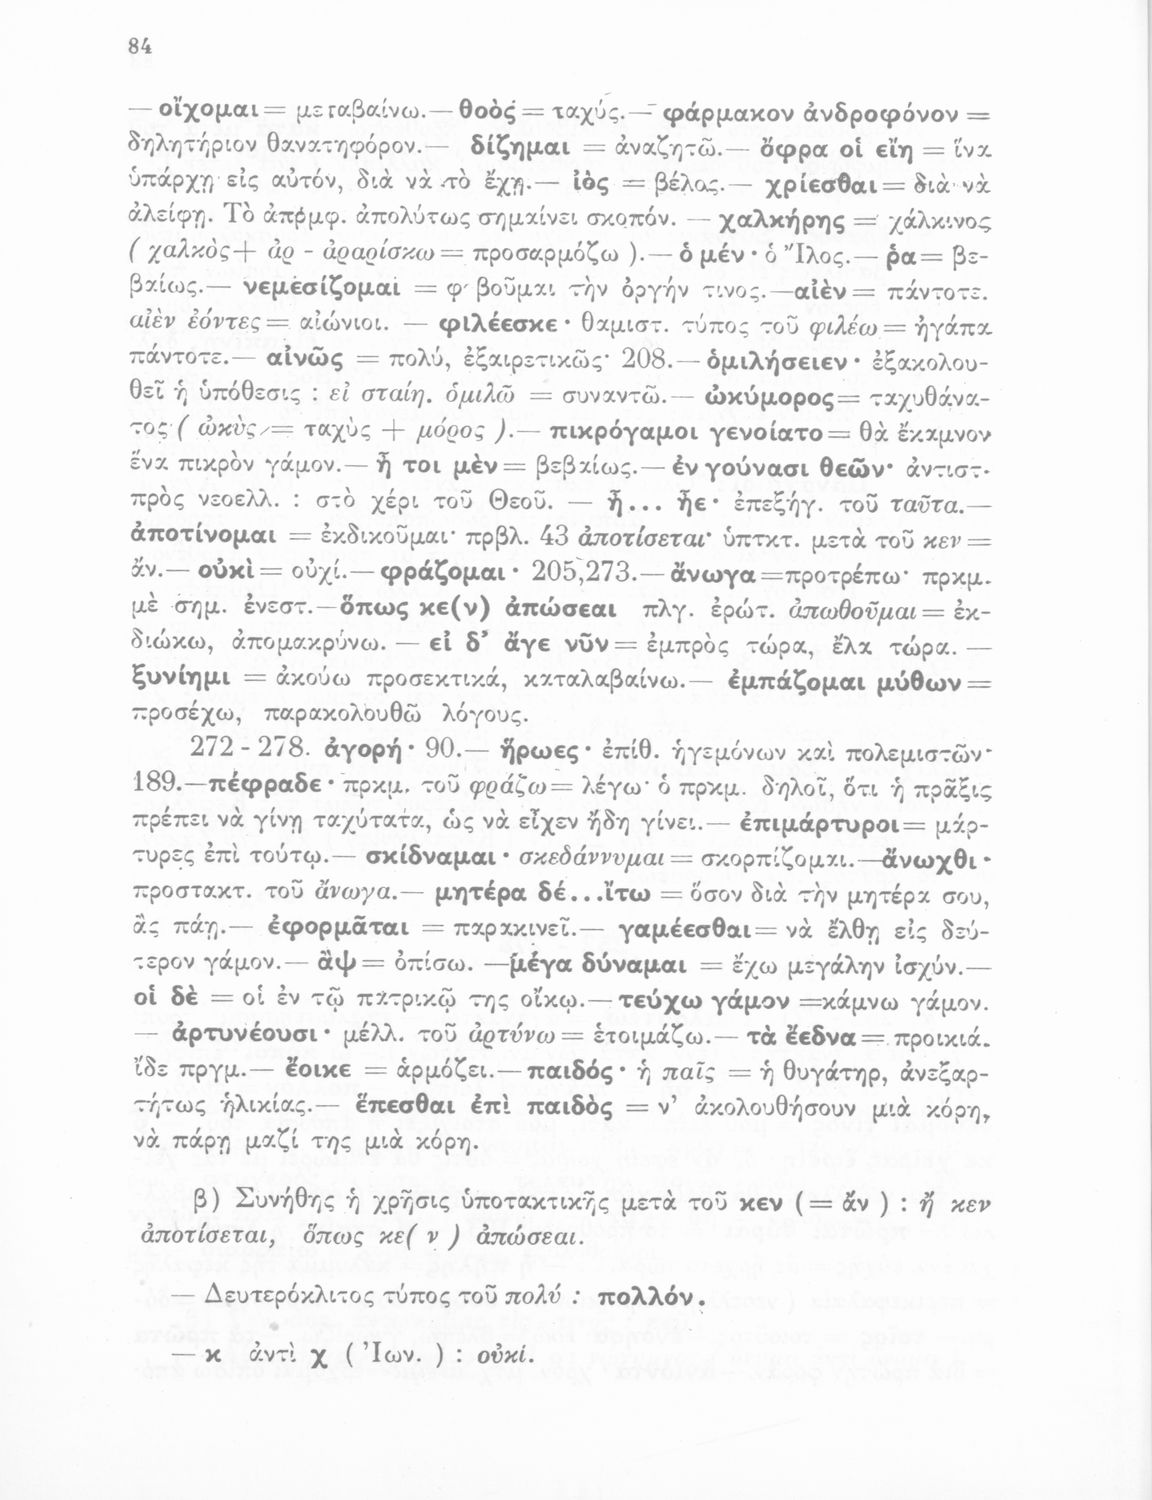 84
— οἴχομαι = μεταβαίνω.— θοὸς = ταχύς.— φάρμακον ἀνδροφόνον =
δηλητήριον θανατηφόρον.— δίζημαι = ἀναζητῶ.— ὄφρα οἱ εἴη = ἵνα
ὑπάρχῃ εἰς αὐτόν, διὰ νὰ τὸ ἔχῃ.— ἰὸς = βέλος.— χρίεσθαι = διὰ νὰ
ἀλείφῃ. Τὸ ἀπρμφ. ἀπολύτως σημαίνει σκοπόν. — χαλκήρης = χάλκινος
( χαλκὸς + ἀρ - ἀραρίσκω = προσαρμόζω ).— ὁ μέν · ὁ Ἶλος.— ῥα = βε-
βαίως.— νεμεσίζομαι = φοβοῦμαι τὴν ὀργήν τινος.—αἰὲν = πάντοτε.
αἰὲν ἐόντες = αἰώνιοι. — φιλέεσκε · θαμιστ. τύπος τοῦ φιλέω = ἠγάπα
πάντοτε.— αἰνῶς = πολύ, ἐξαιρετικῶς· 208.— ὁμιλήσειεν · ἐξακολου-
θεῖ ἡ ὑπόθεσις : εἰ σταίη. ὁμιλῶ = συναντῶ.— ὠκύμορος = ταχυθάνα-
τος ( ὠκὺς = ταχὺς + μόρος ).— πικρόγαμοι γενοίατο = θὰ ἔκαμνον
ἕνα πικρὸν γάμον.— ἦ τοι μὲν = βεβαίως.— ἐν γούνασι θεῶν· ἀντιστ.
πρὸς νεοελλ. : στὸ χέρι τοῦ Θεοῦ. — ἦ... ἦε · ἐπεξήγ. τοῦ ταῦτα.—
ἀποτίνομαι = ἐκδικοῦμαι· πρβλ. 43 ἀποτίσεται· ὑπτκτ. μετὰ τοῦ κεν =
ἄν.— οὐκὶ = οὐχί.— φράζομαι · 205,273.— ἄνωγα =προτρέπω· πρκμ.
μὲ σημ. ἐνεστ.—ὅπως κε(ν) ἀπώσεαι πλγ. ἐρώτ. ἀπωθοῦμαι = ἐκ-
διώκω, ἀπομακρύνω. — εἰ δ' ἄγε νῦν = ἐμπρὸς τώρα, ἔλα τώρα. —
ξυνίημι = ἀκούω προσεκτικά, καταλαβαίνω.— ἐμπάζομαι μύθων =
προσέχω, παρακολουθῶ λόγους.
272 - 278. ἀγορή · 90.— ἥρωες · ἐπίθ. ἡγεμόνων καὶ πολεμιστῶν·
189.—πέφραδε · πρκμ. τοῦ φράζω = λέγω· ὁ πρκμ. δηλοῖ, ὅτι ἡ πρᾶξις
πρέπει νὰ γίνῃ ταχύτατα, ὡς νὰ εἶχεν ἤδη γίνει.— ἐπιμάρτυροι = μάρ-
τυρες ἐπὶ τούτῳ.— σκίδναμαι · σκεδάννυμαι = σκορπίζομαι.—ἄνωχθι ·
προστακτ. τοῦ ἄνωγα.— μητέρα δέ...ἴτω = ὅσον διὰ τὴν μητέρα σου,
ἂς πάῃ.— ἐφορμᾶται = παρακινεῖ.— γαμέεσθαι = νὰ ἔλθῃ εἰς δεύ-
τερον γάμον.— ἂψ = ὀπίσω. —μέγα δύναμαι = ἔχω μεγάλην ἰσχύν.—
οἱ δὲ = οἱ ἐν τῷ πατρικῷ της οἴκῳ.— τεύχω γάμον =κάμνω γάμον.
— ἀρτυνέουσι · μέλλ. τοῦ ἀρτύνω = ἑτοιμάζω.— τὰ ἔεδνα = προικιά.
ἴδε πργμ.— ἔοικε = ἁρμόζει.— παιδός · ἡ παῖς = ἡ θυγάτηρ, ἀνεξαρ-
τήτως ἡλικίας.— ἕπεσθαι ἐπὶ παιδὸς = ν' ἀκολουθήσουν μιὰ κόρη,
νὰ πάρῃ μαζί της μιὰ κόρη.
β) Συνήθης ἡ χρῆσις ὑποτακτικῆς μετὰ τοῦ κεν (= ἄν ) : ἤ κεν
ἀποτίσεται, ὅπως κε( ν ) ἀπώσεαι.
— Δευτερόκλιτος τύπος τοῦ πολύ : πολλόν.
— κ ἀντὶ χ ( Ἰων. ) : οὐκί.